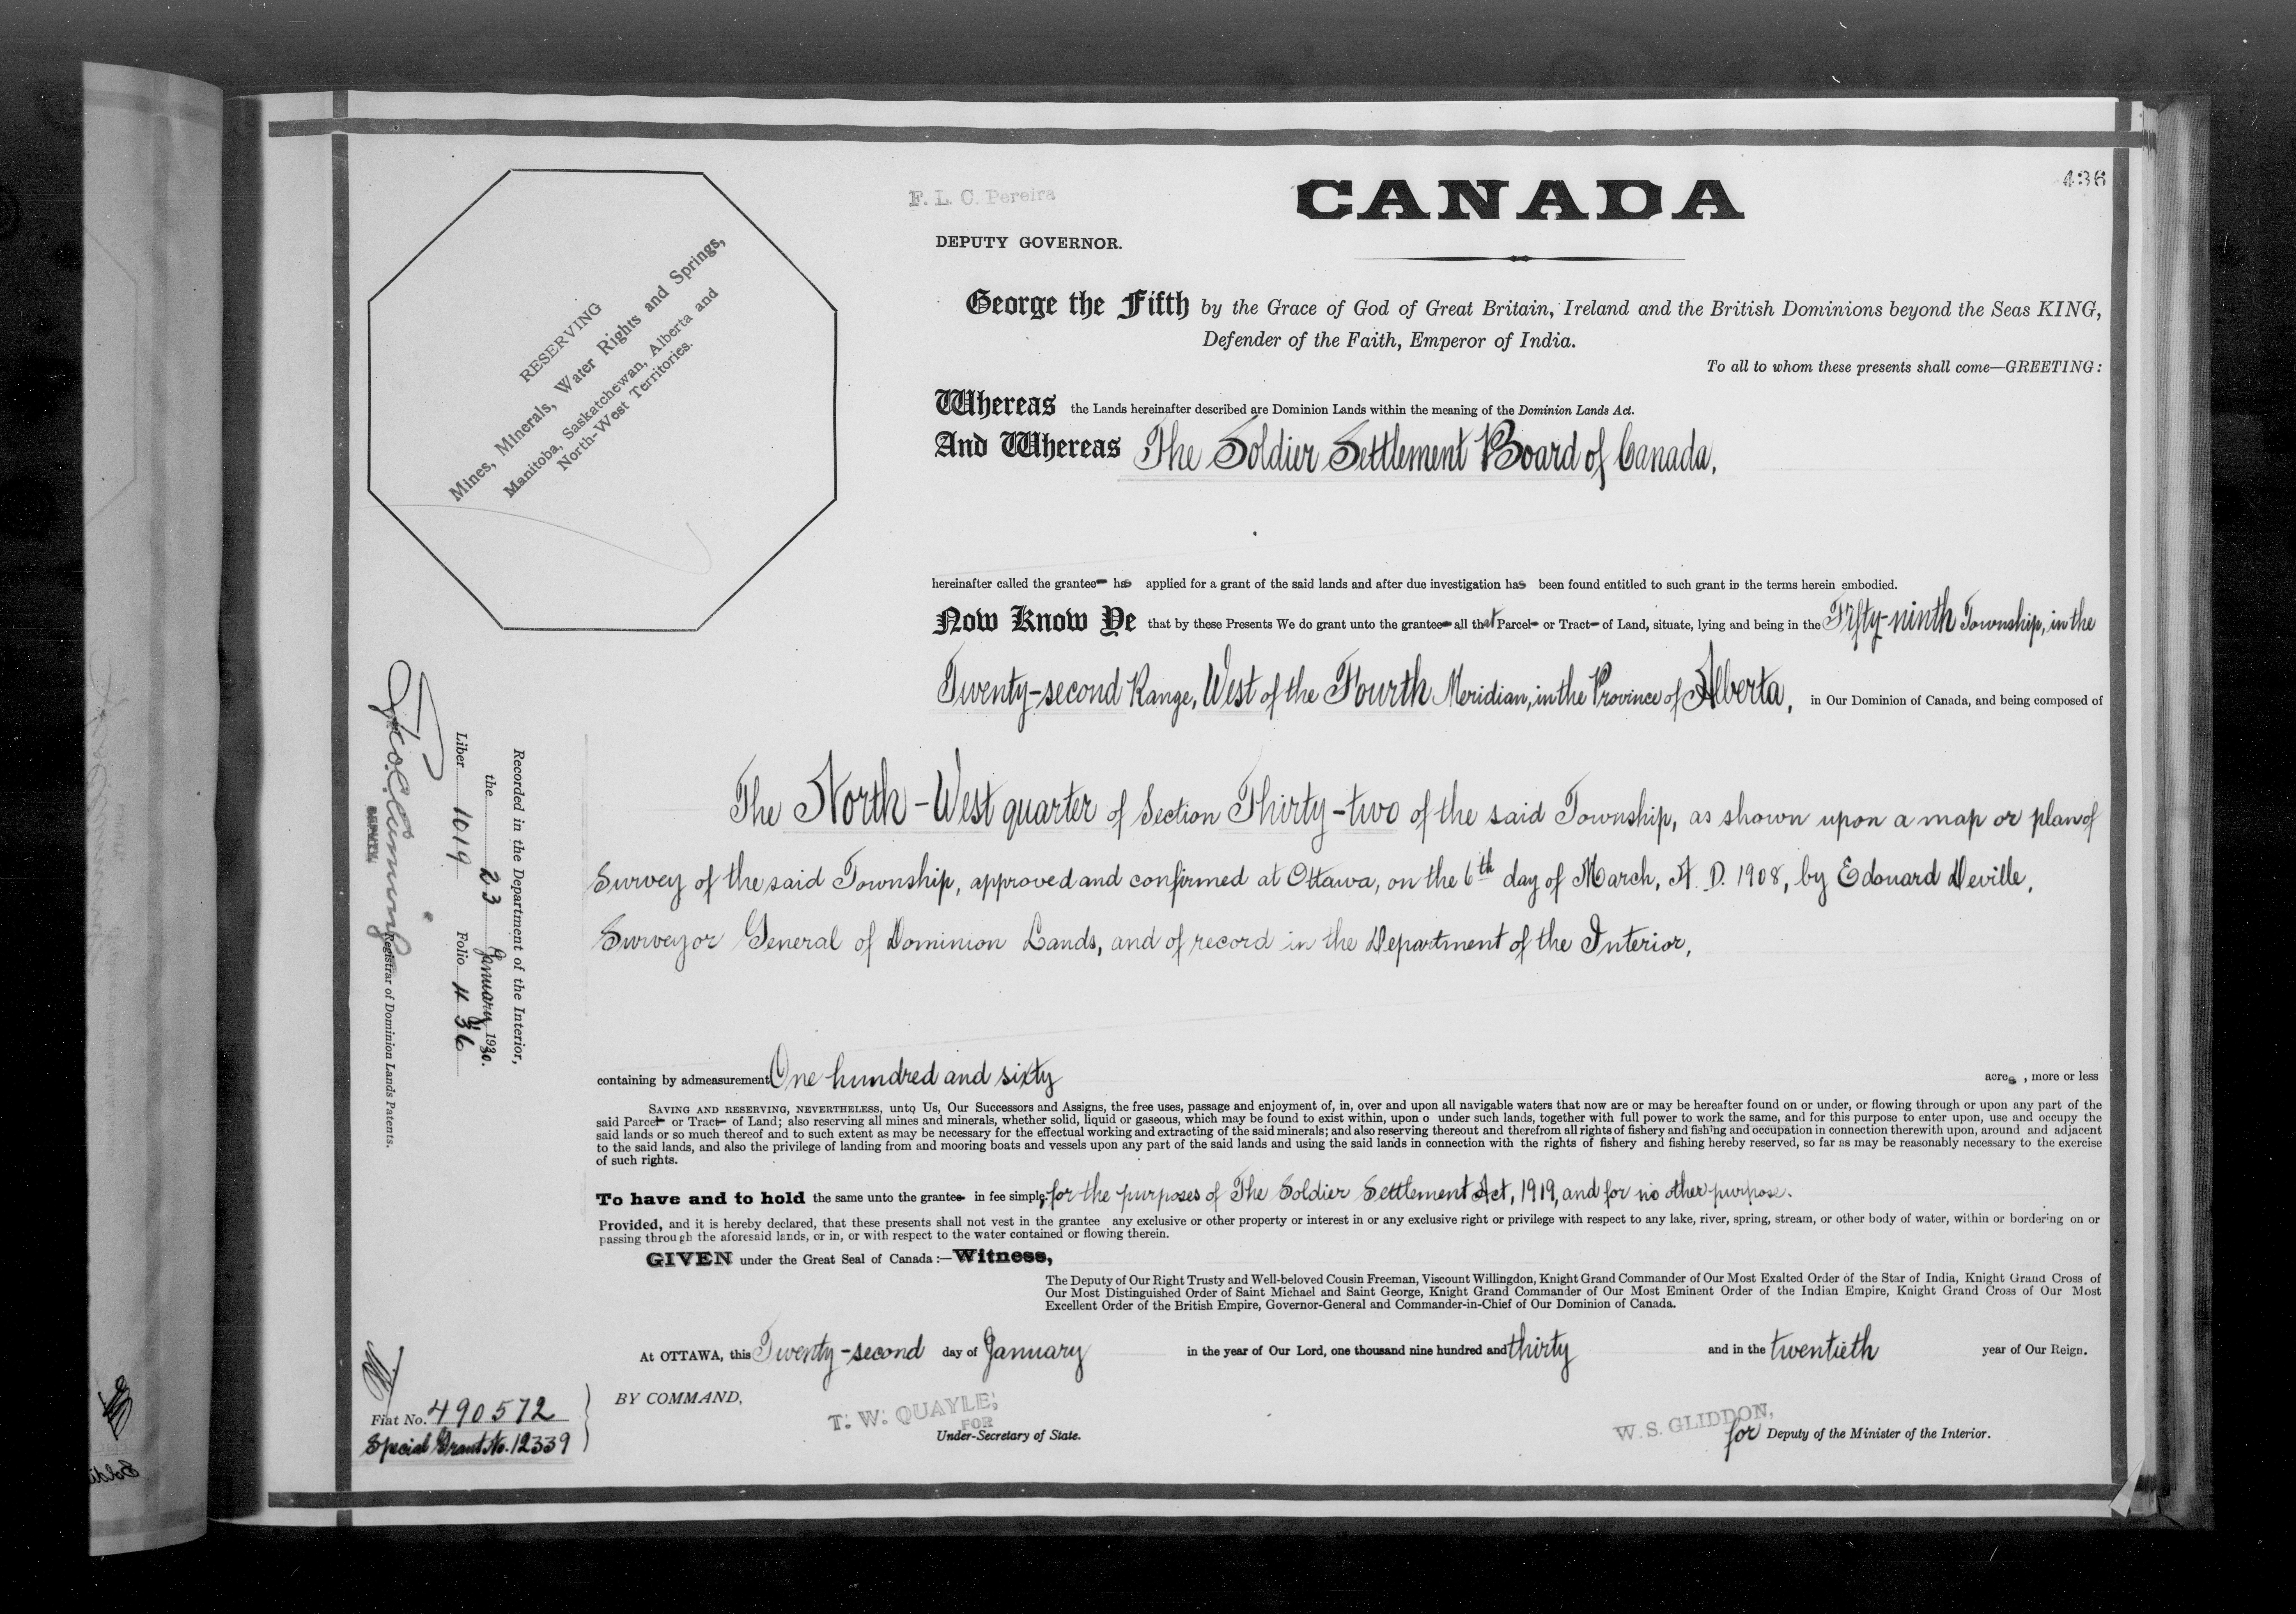 436
F. L. C. Pereira
CANADA
DEPUTY GOVERNOR.
RESERVING
Mines, Minerals, Water Rights and Springs,
Manitoba, Saskatchewan, Alberta and
North-West Territories.
George the Fifth by the Grace of God of Great Britain, Ireland and the British Dominions beyond the Seas KING,
Defender of the Faith, Emperor of India.
To all to whom these presents shall come—GREETING:
Whereas the Lands hereinafter described are Dominion Lands within the meaning of the Dominion Lands Act.
And Whereas The Soldier Settlement Board of Canada,
hereinafter called the grantee has applied for a grant of the said lands and after due investigation has been found entitled to such grant in the terms herein embodied.
Now Know Ye that by these Presents We do grant unto the grantee all that Parcel or Tract of Land, situate, lying and being in the Fifty-ninth Township, in the
Twenty-second Range, West of the Fourth Meridian, in the Province of Alberta, in Our Dominion of Canada, and being composed of
The North-West quarter of Section Thirty-two of the said Township, as shown upon a map or plan of
Survey of the said Township, approved and confirmed at Ottawa, on the 6th day of March, A. D. 1908, by Edouard Deville,
Surveyor General of Dominion Lands, and of record in the Department of the Interior,
containing by admeasurement One hundred and sixty acres, more or less
SAVING AND RESERVING, NEVERTHELESS, unto Us, Our Successors and Assigns, the free uses, passage and enjoyment of, in, over and upon all navigable waters that now are or may be hereafter found on or under, or flowing through or upon any part of the
said Parcel or Tract of Land; also reserving all mines and minerals, whether solid, liquid or gaseous, which may be found to exist within, upon o under such lands, together with full power to work the same, and for this purpose to enter upon, use and occupy the
said lands or so much thereof and to such extent as may be necessary for the effectual working and extracting of the said minerals; and also reserving thereout and therefrom all rights of fishery and fishing and occupation in connection therewith upon, around and adjacent
to the said lands, and also the privilege of landing from and mooring boats and vessels upon any part of the said lands and using the said lands in connection with the rights of fishery and fishing hereby reserved, so far as may be reasonably necessary to the exercise
of such rights.
To have and to hold the same unto the grantee in fee simple, for the purposes of The Soldier Settlement Act, 1919, and for no other purpose.
Provided, and it is hereby declared, that these presents shall not vest in the grantee any exclusive or other property or interest in or any exclusive right or privilege with respect to any lake, river, spring, stream, or other body of water, within or bordering on or
passing through the aforesaid lands, or in, or with respect to the water contained or flowing therein.
GIVEN under the Great Seal of Canada:—Witness,
The Deputy of Our Right Trusty and Well-beloved Cousin Freeman, Viscount Willingdon, Knight Grand Commander of Our Most Exalted Order of the Star of India, Knight Grand Cross of
Our Most Distinguished Order of Saint Michael and Saint George, Knight Grand Commander of Our Most Eminent Order of the Indian Empire, Knight Grand Cross of Our Most
Excellent Order of the British Empire, Governor-General and Commander-in-Chief of Our Dominion of Canada.
At OTTAWA, this Twenty-second day of January in the year of Our Lord, one thousand nine hundred and thirty and in the twentieth year of Our Reign.
BY COMMAND,
T. W. QUAYLE,
FOR
Under-Secretary of State.
W. S. GLIDDON,
for Deputy of the Minister of the Interior.
Recorded in the Department of the Interior,
the 23 January 1930.
Liber 1019 Folio 436
DEPUTY
Registrar of Dominion Lands Patents.
Fiat No. 490572
Special Grant No. 12339